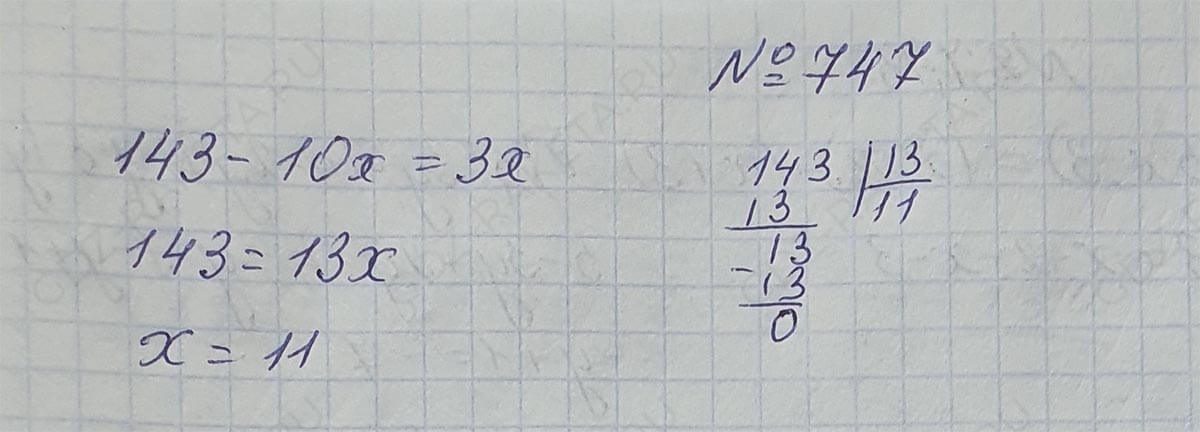 № 747
143 - 10x = 3x
143 = 13x
x = 11
143 | 13
13 | 11
- 13
13
0